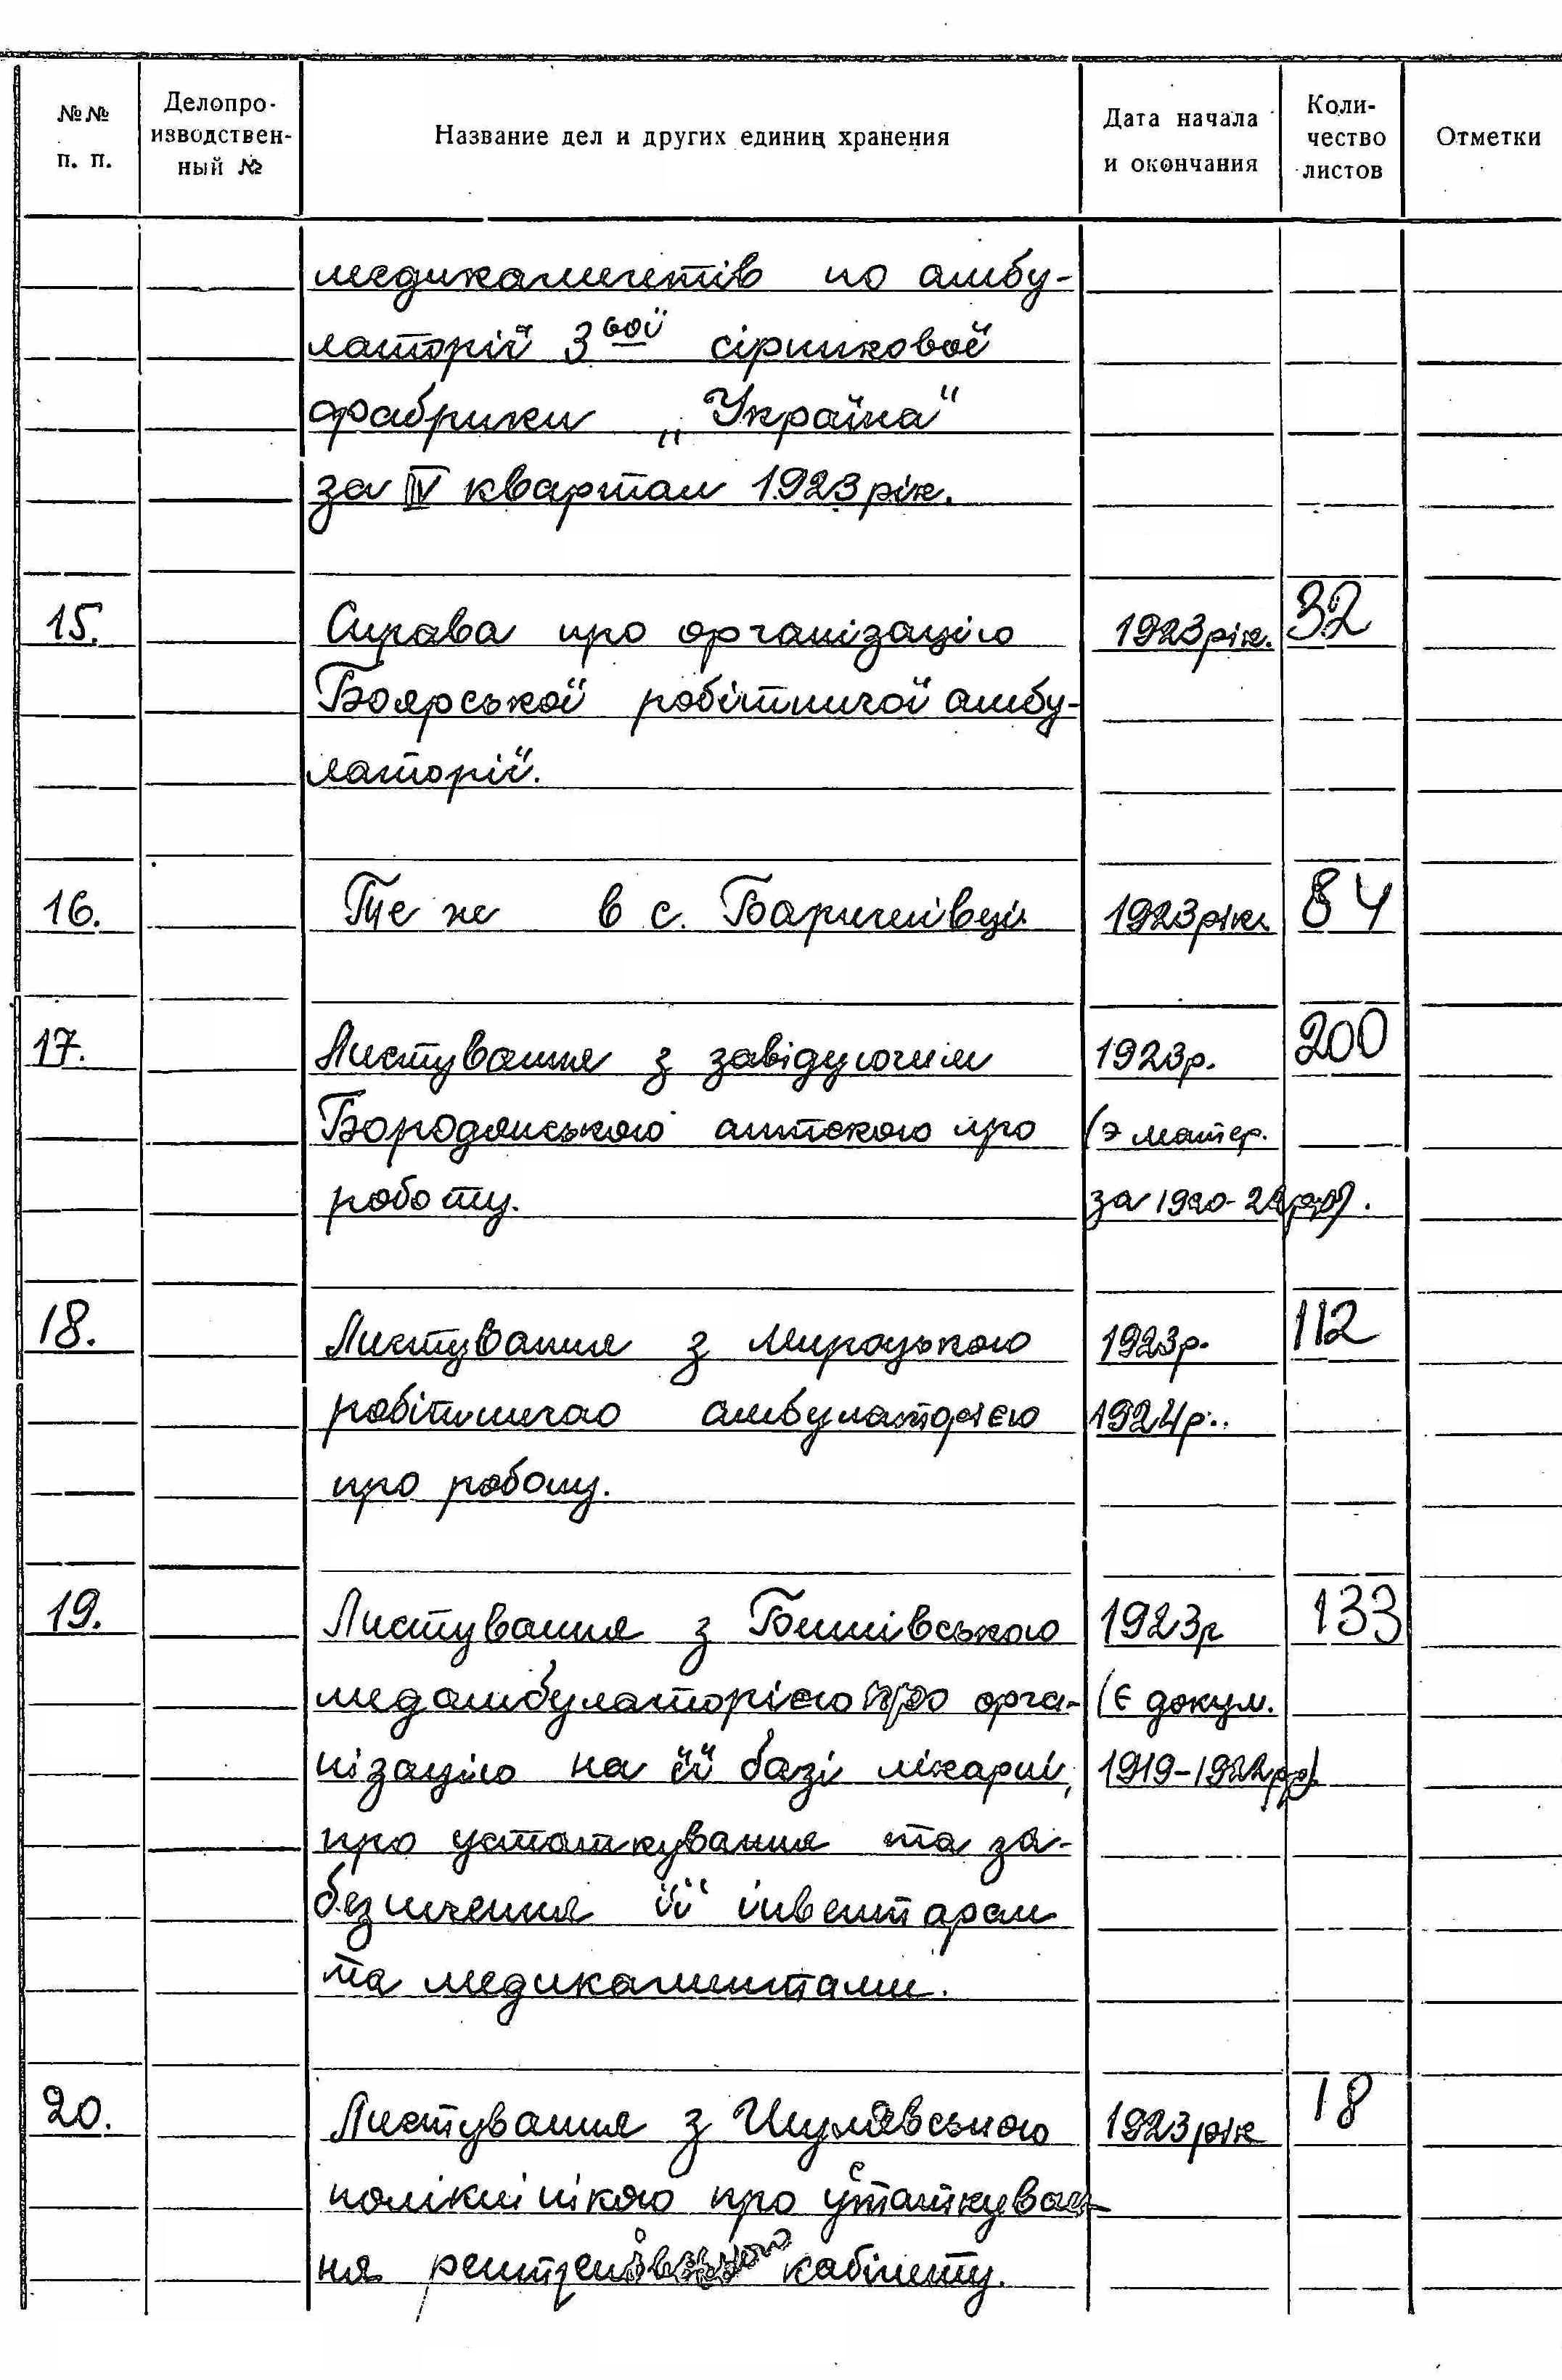 №№ п. п.
Делопро-
изводствен-
ный №
Название дел и других единиц хранения
Дата начала
и окончания
Коли-
чество
листов
Отметки
медикаментів по амбу-
латорії 3ьої сірникової
фабрики „Україна"
за IV квартал 1923 рік.
15. Справа про організацію 1923 рік. 32
Боярської робітничої амбу-
латорії.
16. Те ж в с. Баришівці 1923 рік. 84
17. Листування з завідуючим 1923 р. 200
Бородянською аптекою про (э матер.
роботу. за 1920-22 рр).
18. Листування з Мироцькою 1923 р. 112
робітничао амбулаторією 1924 р..
про роботу.
19. Листування з Бишівською 1923 р 133
медамбулаторією про орга- (є докум.
нізацію на її базі лікарні, 1919-1922 рр).
про устаткування та за-
безпечення її інвентарем
та медикаментами.
20. Листування з Шулявською 1923 рік 18
поліклінікою про устаткуван-
ня кабінету.